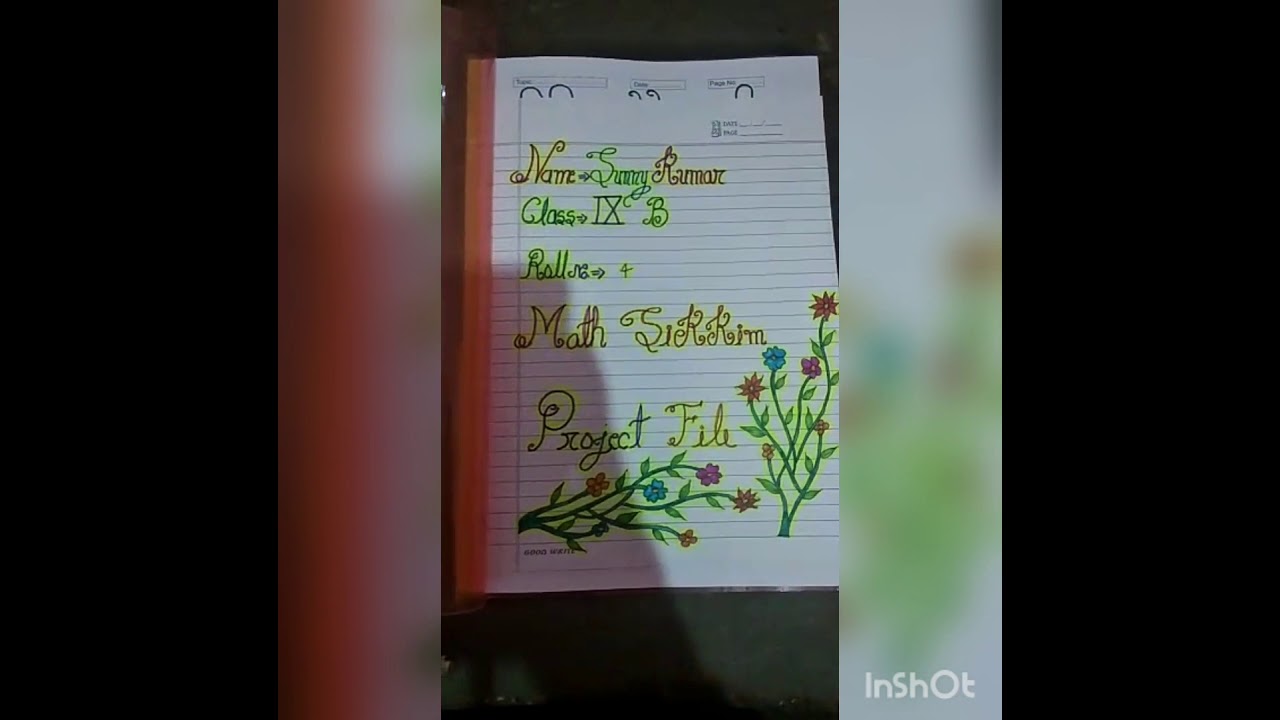 Topic Date Page No
DATE __/__/__
PAGE ______
Name⇒Sunny Kumar
Class⇒IX B
Roll no⇒ 4
Math SiKKim
Project File
GOOD WRITE
InShOt